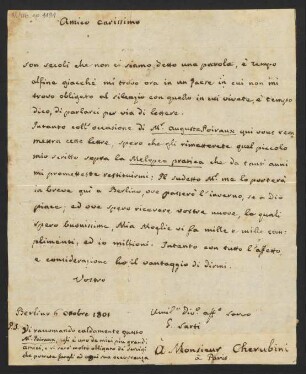 Amico Carissimo
son secoli che non ci siamo detto una parola, è tempo
alfine giacchè mi trovo ora in un Paese in cui non mi
trovo obligato al silenzio con quello in cui vivate, è tempo
dico, di parlarci per via di lettere.
Intanto coll' occasione di Mr. Auguste Poiraux qui vous
cette lettre, spero che gli rimetterete quel piccolo
mio scritto sopra la Melopea pratica che da tanti anni
mi prometteste restituirmi: Il sudetto Mr. me lo porterà
in breve qui a Berlino, ove passerà l'inverno, se a Dio
piace; ed ove spero ricevere vostre nuove, le quali
spero buonissime. Mia Moglie vi fa mille e mille com-
plimenti, ed io millioni. Intanto con tutto l'affetto
e considerazione ho il vantaggio di dirmi.
Vostro
Berlino 6 Ottobre 1801
Umil.mo Div.mo aff. Servo
G. Sarti
P.S. Vi raccomando caldamente questo
Mr. Poiraux, egli è uno de miei più grandi
amici, e vi sarò molto obligato di servigi
che potrete fargli
À Monsieur Cherubini
à Paris